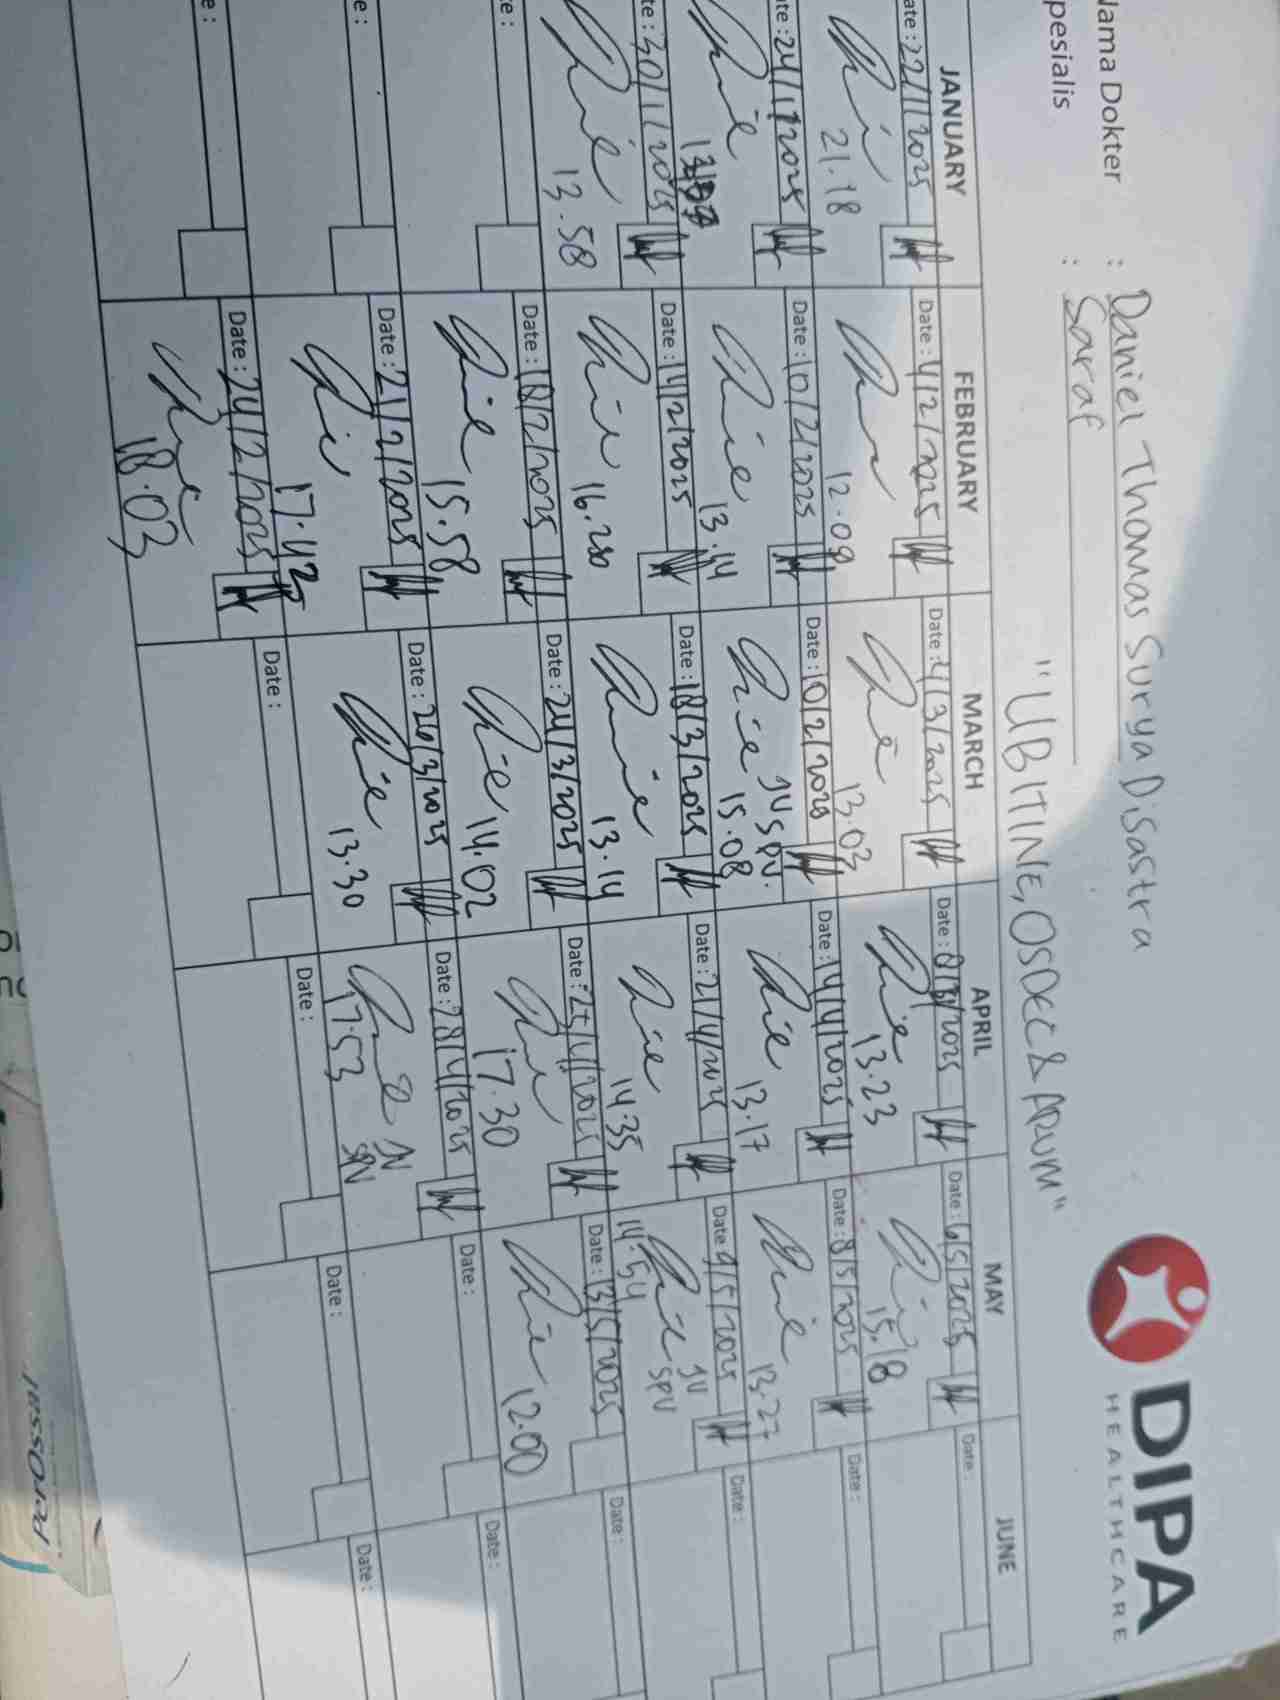 DIPA
HEALTHCARE
Nama Dokter : Daniel Thomas Surya Disastra
pesialis : Saraf
"UBITINE, OSDEC & ARVM"
JANUARY FEBRUARY MARCH APRIL MAY JUNE
ate : 22/1/2025 Date : 4/2/2025 Date : 4/3/2025 Date : 8/3/2025 Date : 6/5/2025 Date :
21.18 12.09 13.03 13.23 15.18
ate : 24/1/2025 Date : 10/2/2025 Date : 10/2/2025 Date : 14/4/2025 Date : 8/5/2025 Date :
13.14 JV SPV. 15.08 13.17 13.27
te : 30/1/2025 Date : 14/2/2025 Date : 18/3/2025 Date : 21/4/2025 Date 9/5/2025 Date :
13.58 16.20 13.14 14.35 14.54 JV SPV
te : Date : 18/2/2025 Date : 24/3/2025 Date : 25/4/2025 Date : 13/5/2025 Date :
15.58 14.02 17.30 12.00
te : Date : 21/2/2025 Date : 26/3/2025 Date : 28/4/2025 Date : Date :
17.42 13.30 17.53 JV SPV
e : Date : 24/2/2025 Date : Date : Date : Date :
18.03